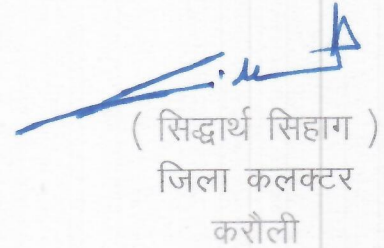 ( सिद्धार्थ सिहाग )
जिला कलक्टर
करौली